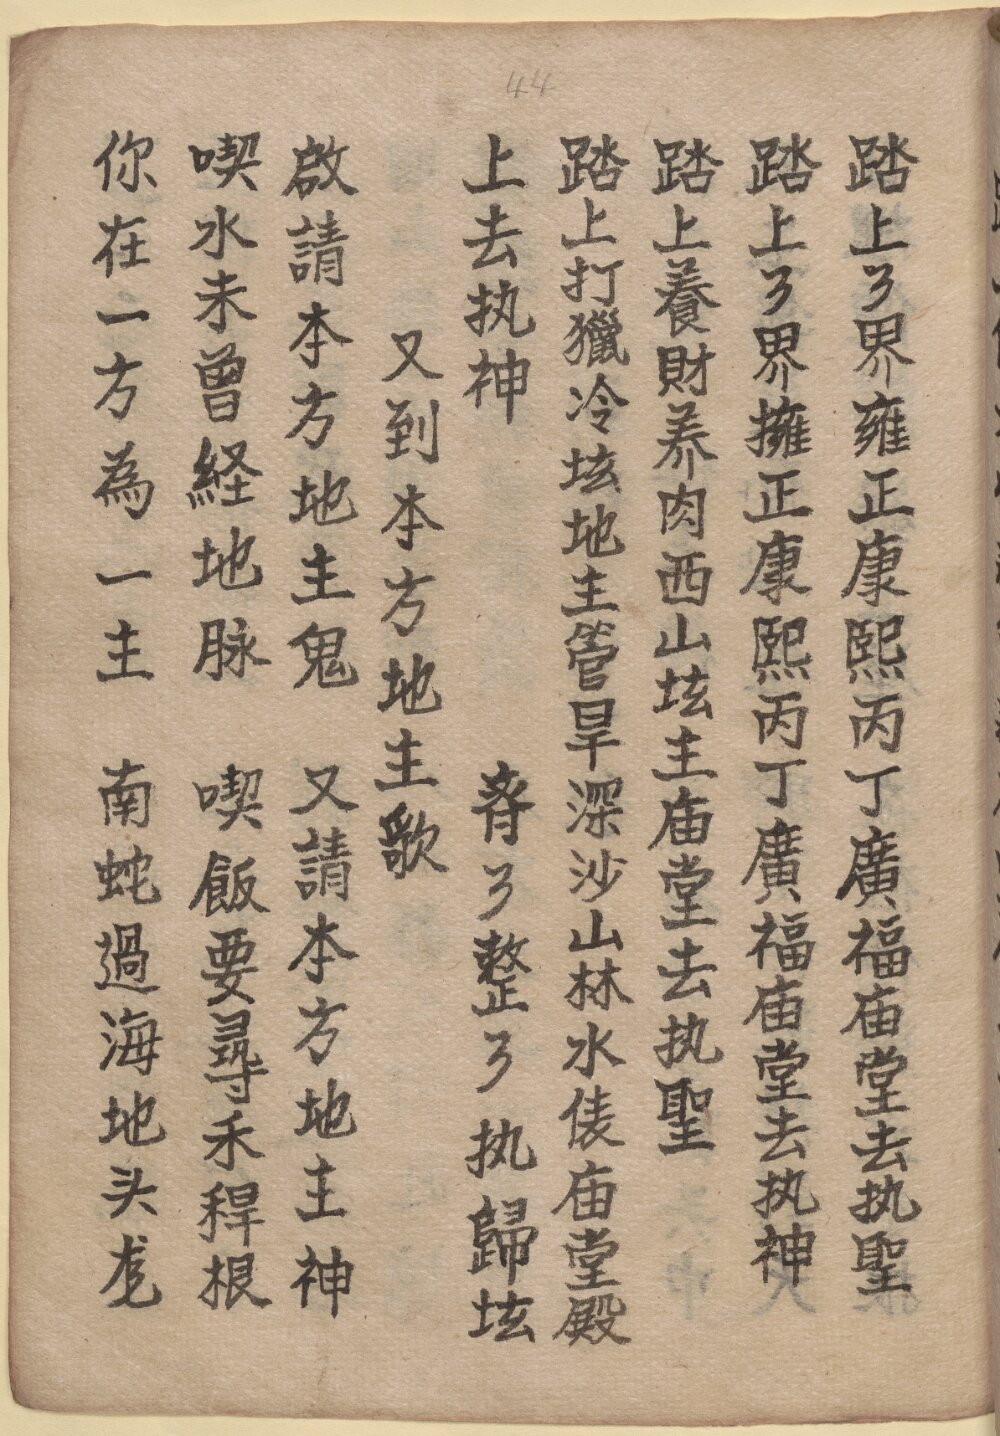 44
踏上了界雍正康熙丙丁廣福庙堂去执聖
踏上了界擁正康熙丙丁廣福庙堂去执神
踏上養財养肉西山坛主庙堂去执聖
踏上打獵冷坛地主管旱深沙山林水庙堂殿
上去执神 脊了整了执歸坛
又到本方地主歌
啟請本方地主鬼 又請本方地主神
喫水未曾経地脉 喫飯要尋禾稈根
你在一方為一主 南蛇過海地头